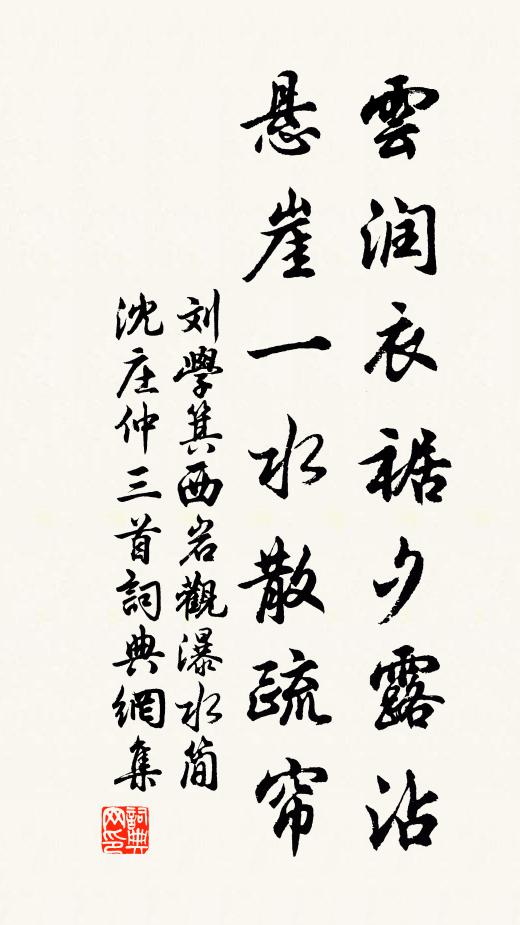 雲润衣裾夕露沾
悬崖一水散疏帘
刘學箕西岩觀瀑水简
沈庄仲三首詞典網集
詞典网印